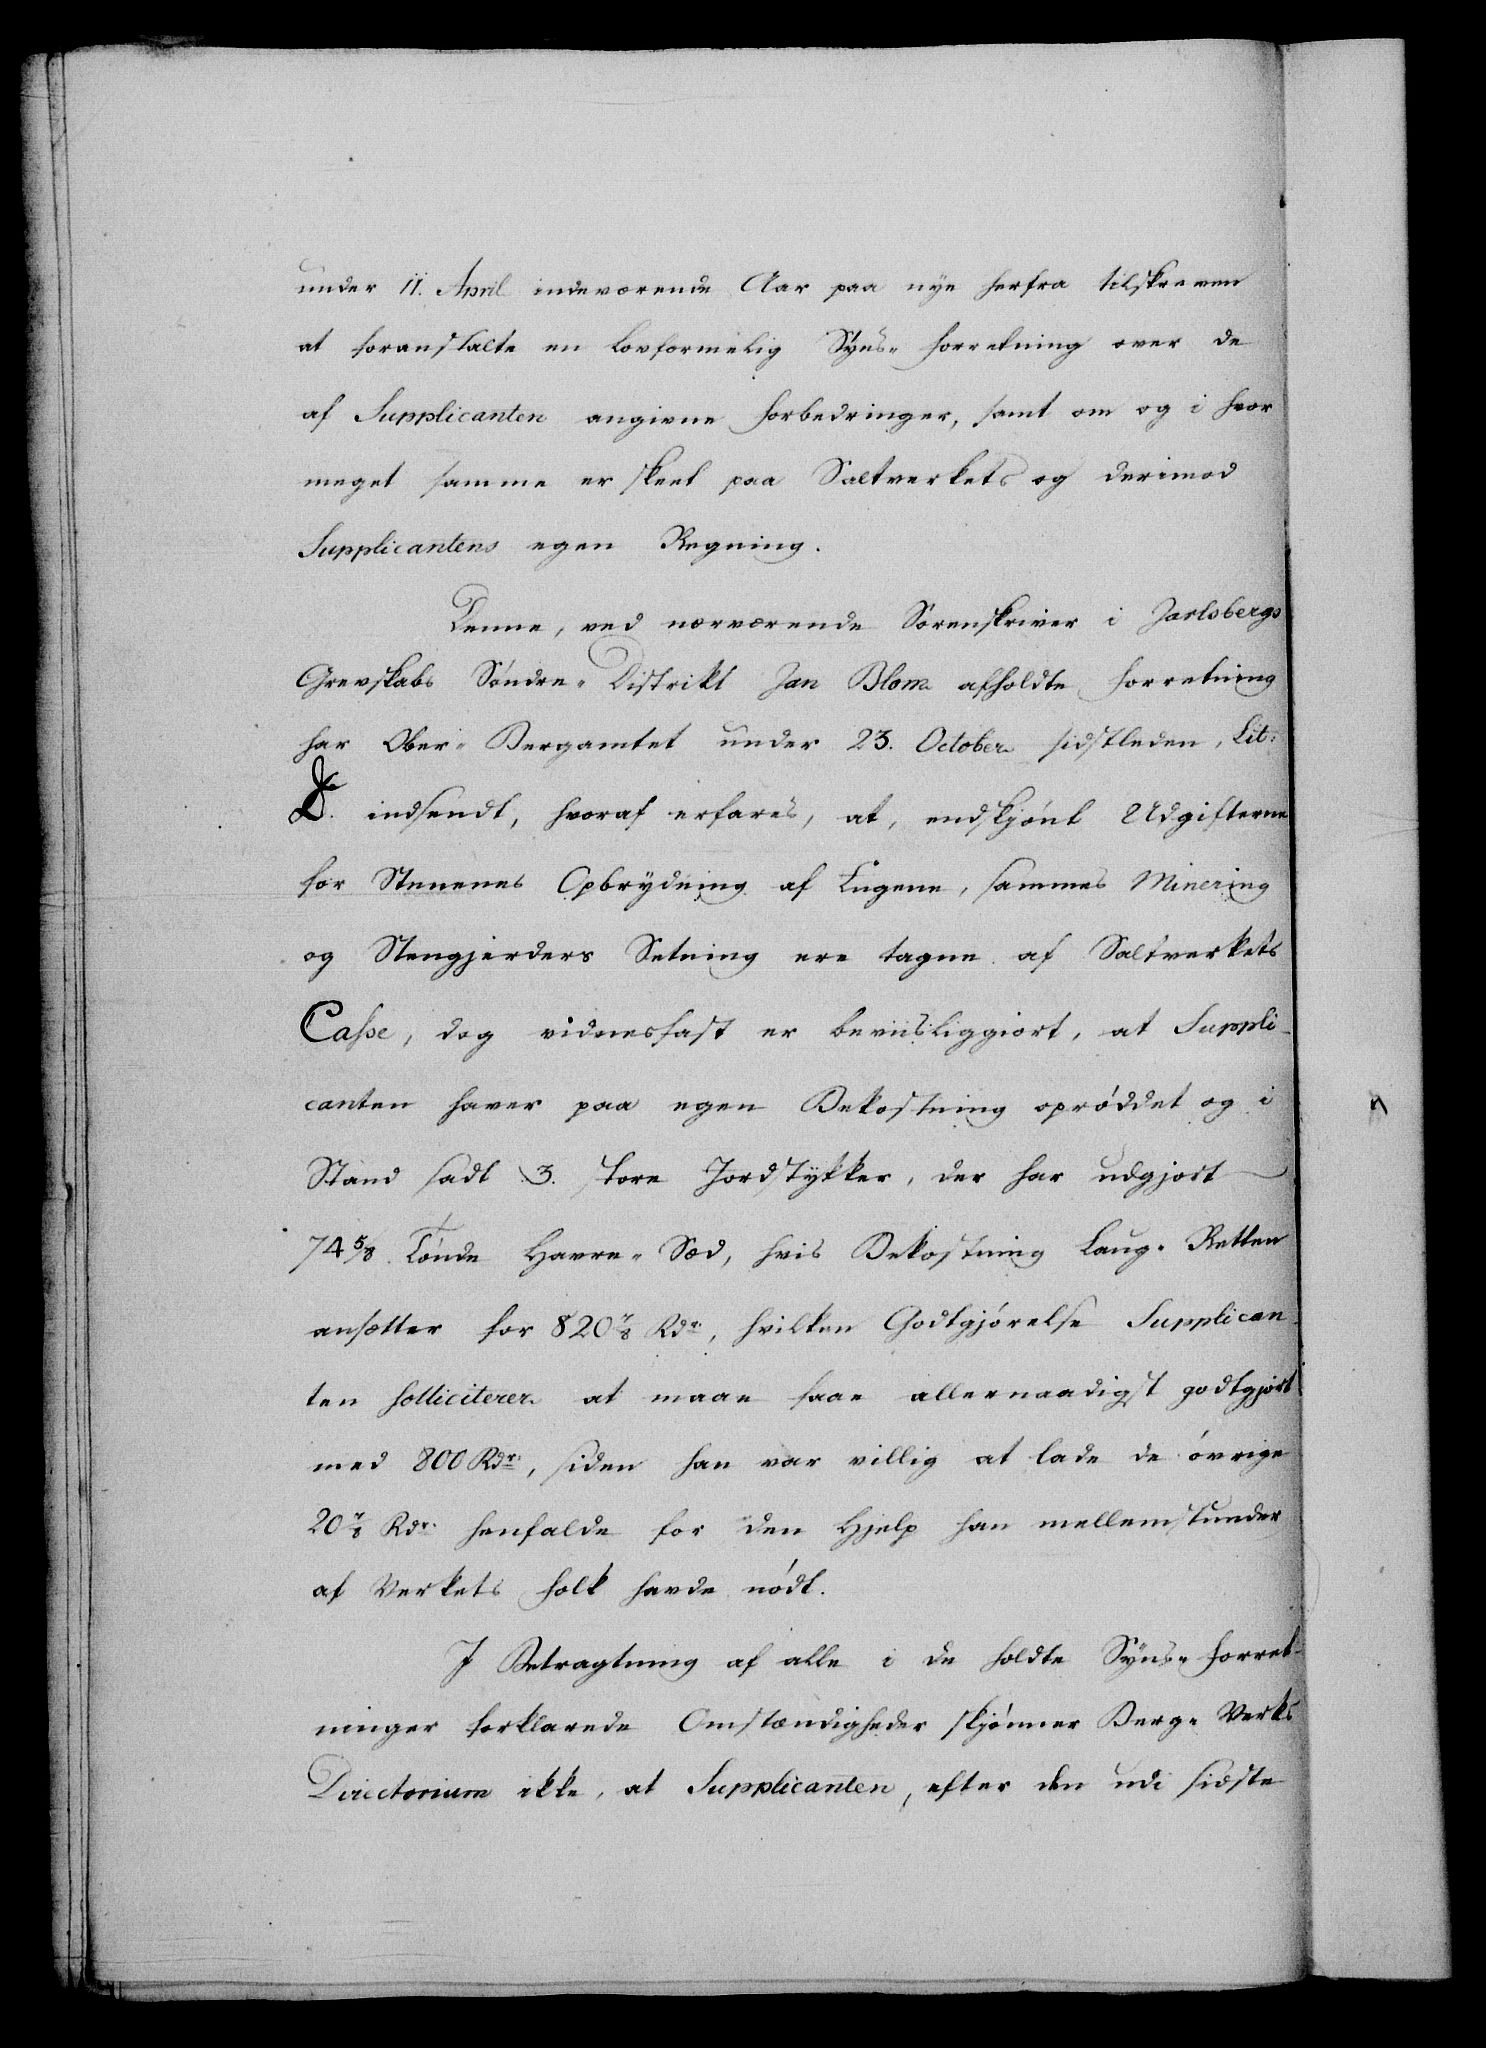 under 11. April indeværende Aar paa nye herfra tilskreven
at foranstalte en lovformelig Syns- Forretning over de
af Supplicanten angivne Forbedringer, samt om og i hvor
meget samme er skeet paa Saltverkets og derimod
Supplicantens egen Regning.
Denne, ved nærværende Sorenskriver i Jarlsbergs
Grevskabs Søndre- Distrikt Jan Blom afholdte Forretning
har Ober- Bergamtet under 23. October sidstleden, Lit:
D. indsendt, hvoraf erfares, at, endskjønt Udgifterne
for Stenenes Opbrydning af Engene, sammes Minering
og Stengjerders Setning ere tagne af Saltverkets
Casse, dog vidnesfast er beviisliggiort, at Suppli-
canten haver paa egen Bekostning oprøddet og i
Stand sadt 3. store Jordstykker, der har udgjort
74 5/8 Tønde Havre- Sæd, hvis Bekostning Laug- Retten
ansætter for 820 7/8 Rdr., hvilken Godtgjørelse Supplican-
ten solliciterer at maae faae allernaadigst godtgjort
med 800 Rdr., siden han var villig at lade de øvrige
20 7/8 Rdr. henfalde for den Hjelp han mellemstunder
af Verkets Folk havde nødt.
I Betragtning af alle i de holdte Syns- Forret-
ninger forklarede Omstændigheder skjønner Berg- Verks
Directorium ikke, at Supplicanten, efter den udi sidste